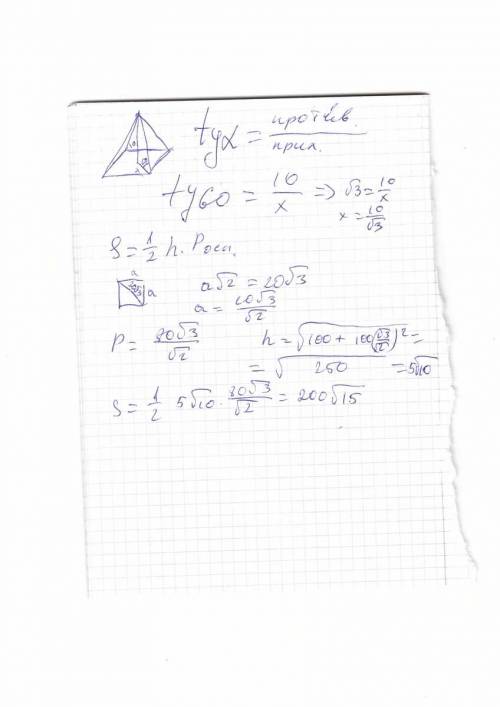 tgα = против. / прил.
tg60 = 10/x => √3 = 10/x
x = 10/√3
S = 1/2 h · Pосн.
a
a
a√2 = 20√3
a = 20√3/√2
P = 80√3/√2
h = √(100 + 100(√3/√2)² =
= √250 = 5√10
S = 1/2 5√10 · 80√3/√2 = 200√15